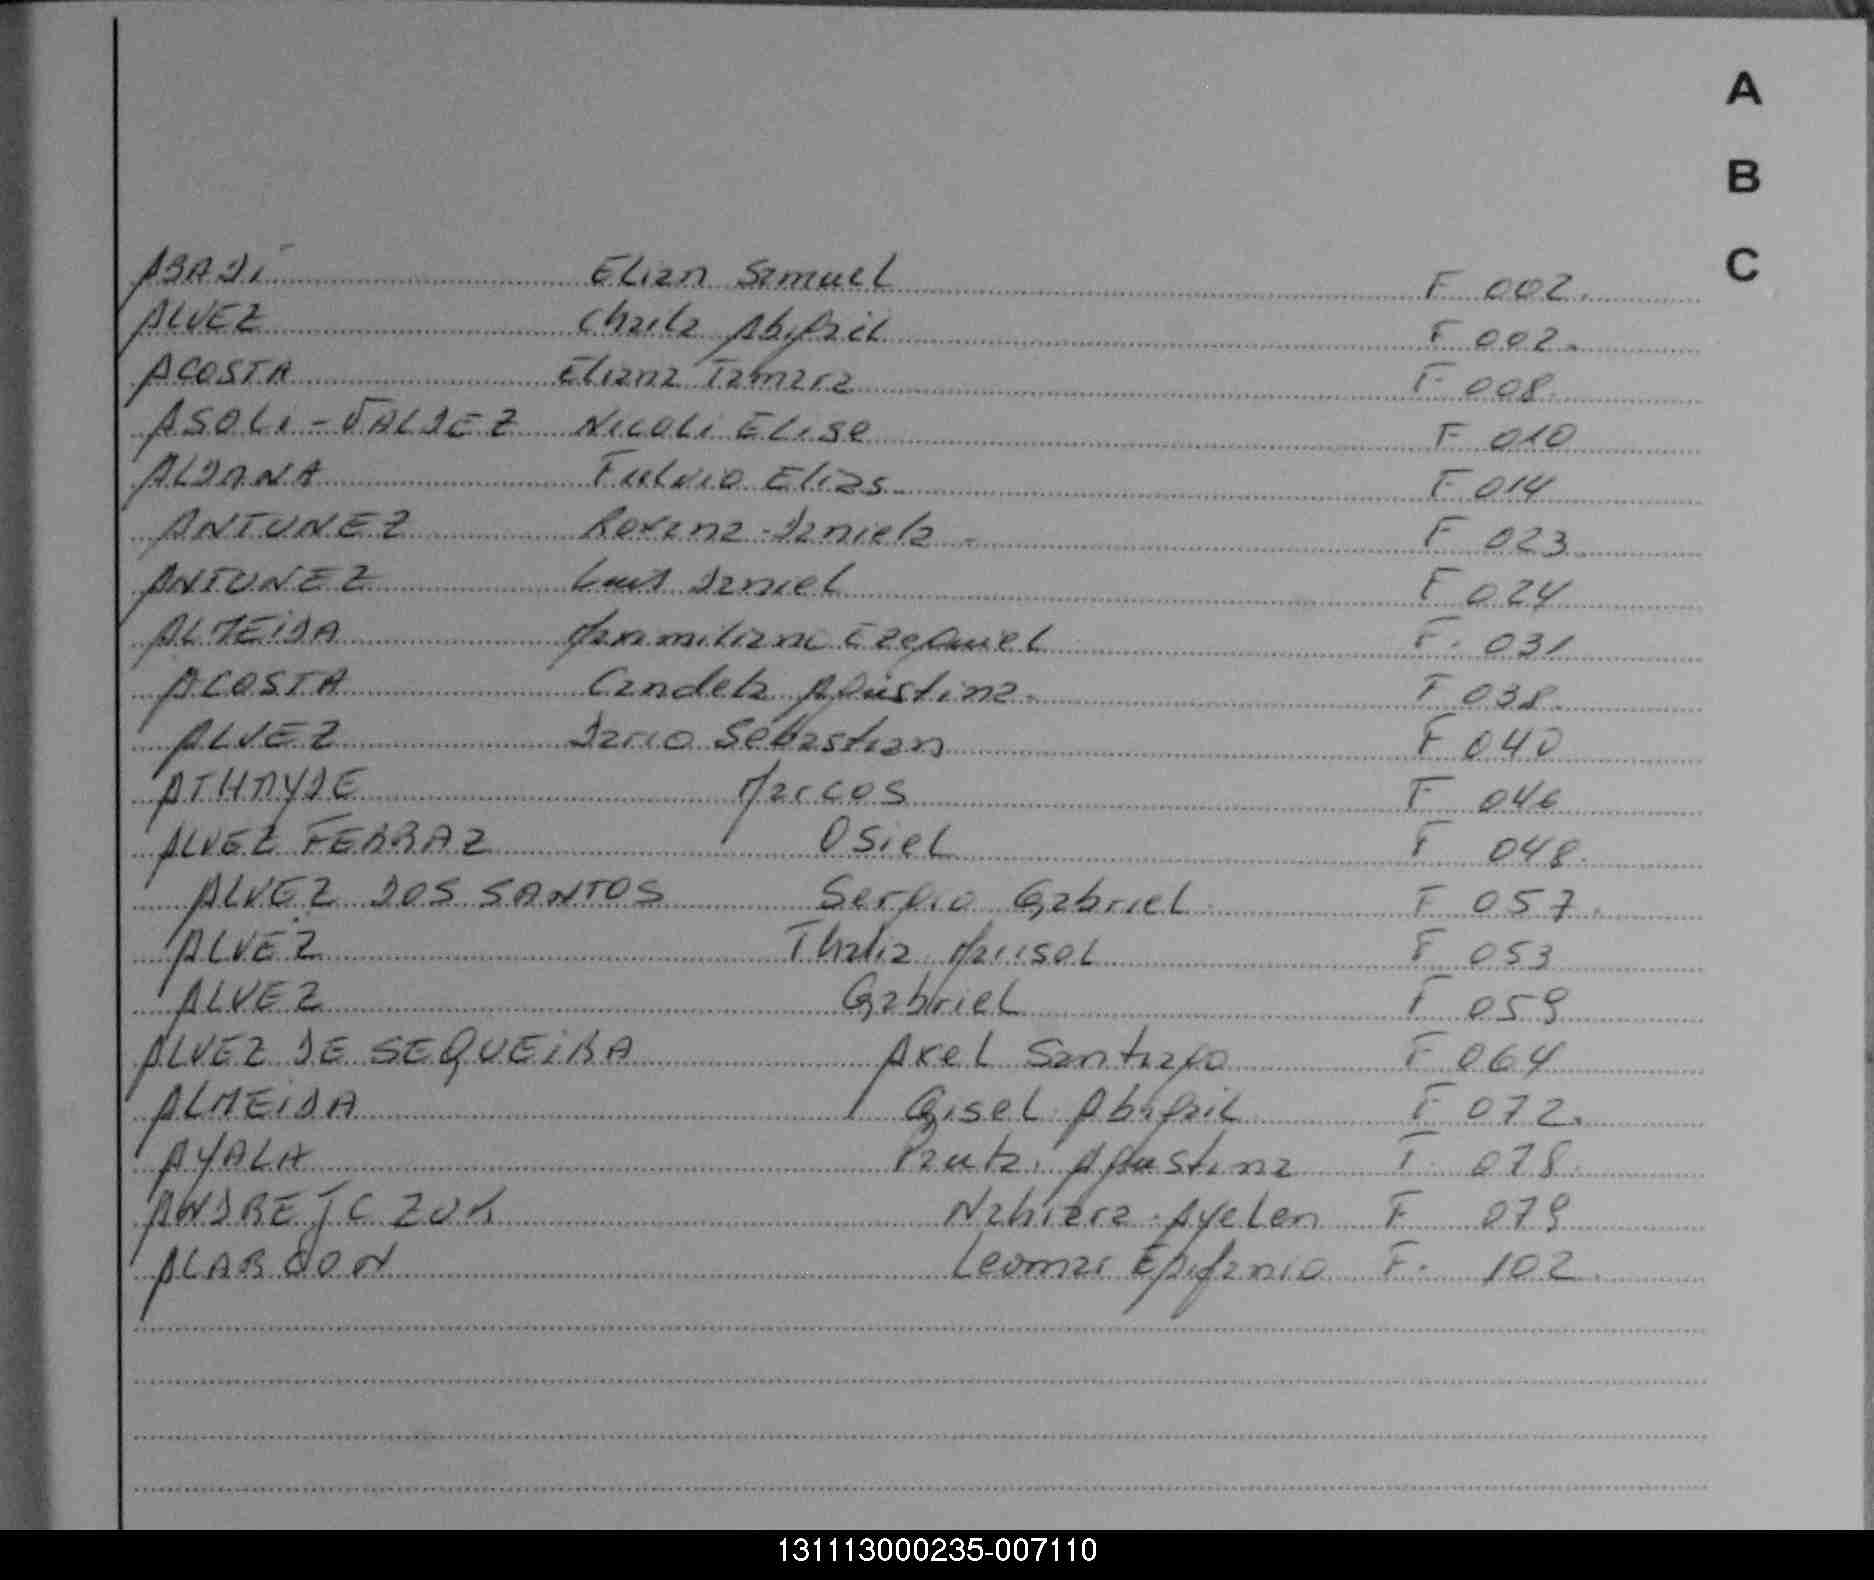 A
B
C
ABADI Elian Samuel F 002.
ALVEZ Charla Abigail F 002.
ACOSTA Eliana Tamara F 008.
ASOLI - VALDEZ Nicoli Elise F 010
ALDANA Fulvio Elias F 014
ANTUNEZ Roxana Daniela F 023.
ANTUNEZ Luis Daniel F 024
ALMEIDA Maximiliano Ezequiel F. 031
ACOSTA Candela Agustina. F 038.
ALVEZ Dario Sebastian F 040
ATHAYDE Marcos F 046
ALVEZ FERRAZ Osiel F 048.
ALVEZ DOS SANTOS Sergio Gabriel F 057.
ALVEZ Thalia Marisol F 053
ALVEZ Gabriel F 059
ALVEZ DE SEQUEIRA Axel Santiago F 064
ALMEIDA Gisel Abigail F 072.
AYALA Paula Agustina F. 078.
ANDREJCZUK Nahiara Ayelen F 079
ALARCON Leomar Epifanio F. 102.
131113000235-007110